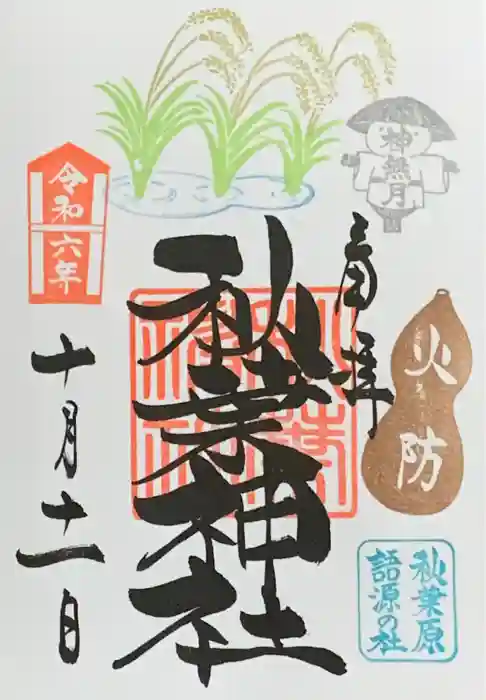 神無月
奉拝
火防
秋葉原
語源の社
秋葉神社
令和六年
十月十一日